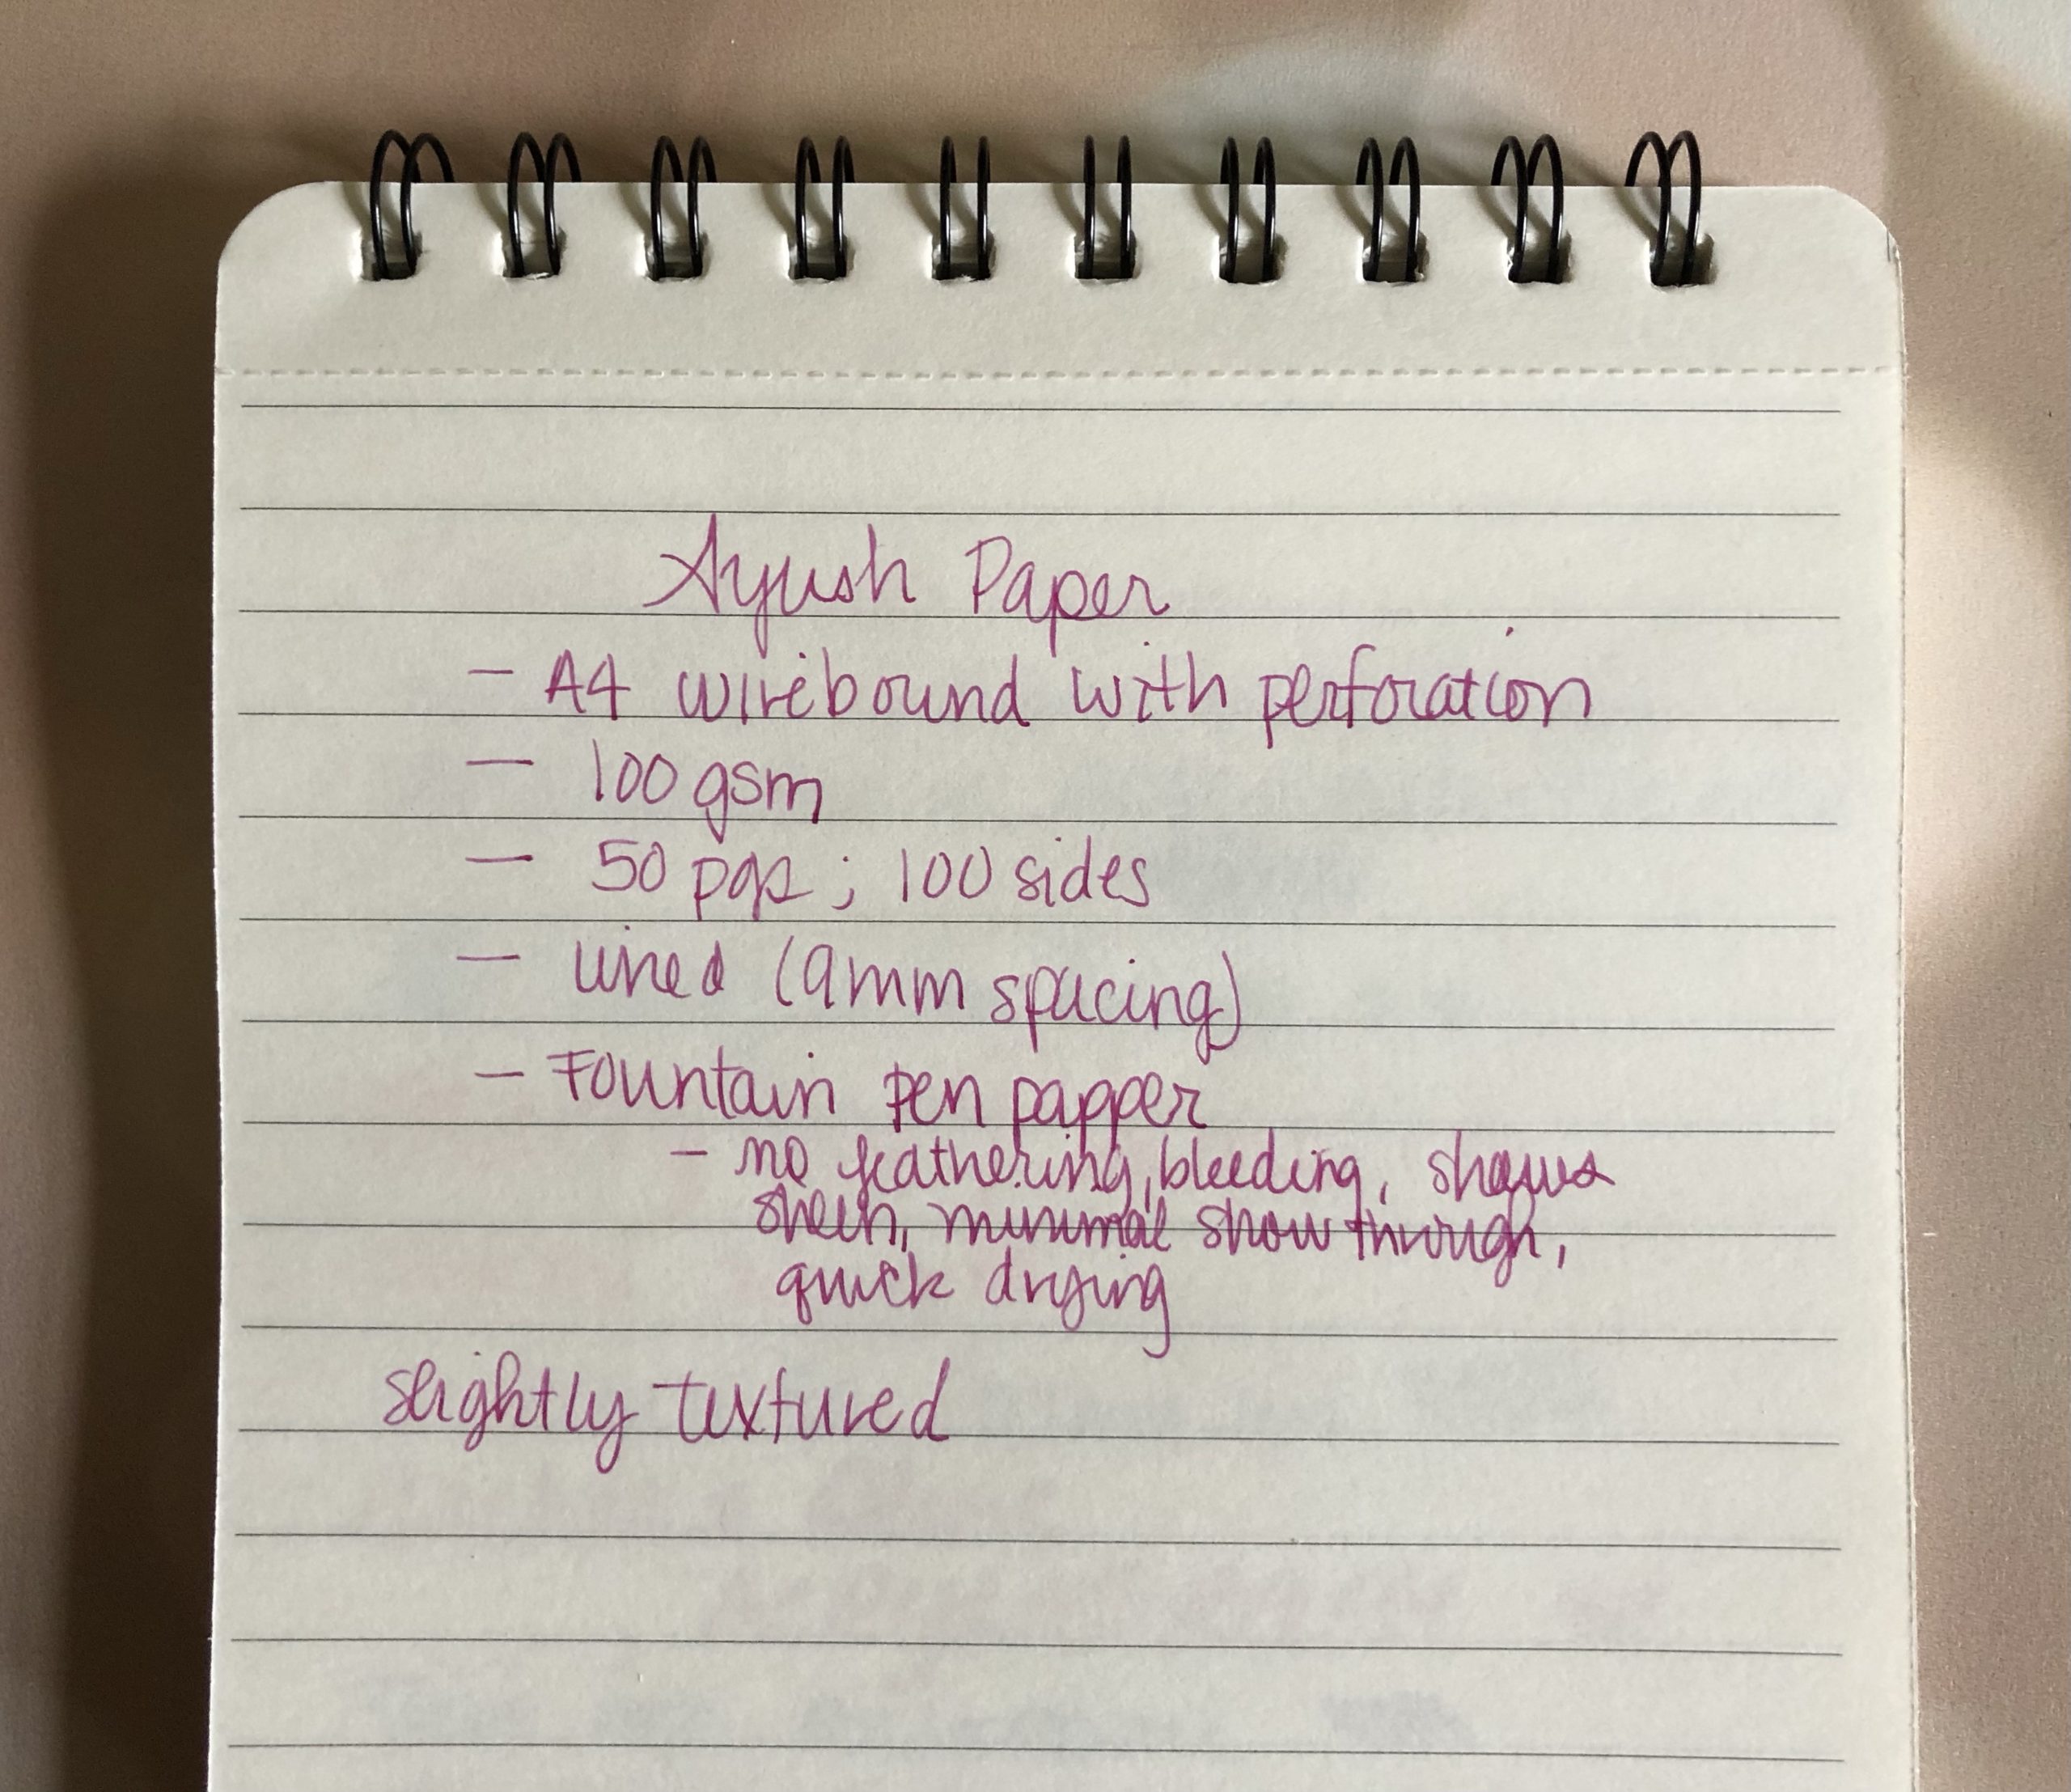 Ayush Paper
- A4 wirebound with perforation
- 100 gsm
- 50 pgs ; 100 sides
- lined (9mm spacing)
- Fountain pen papper
- no feathering, bleeding, shows
sheen, minimal show through,
quick drying
slightly textured